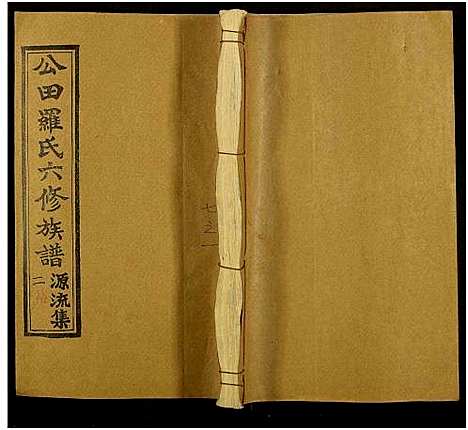 公田羅氏六修族譜
源流集
二
七之一